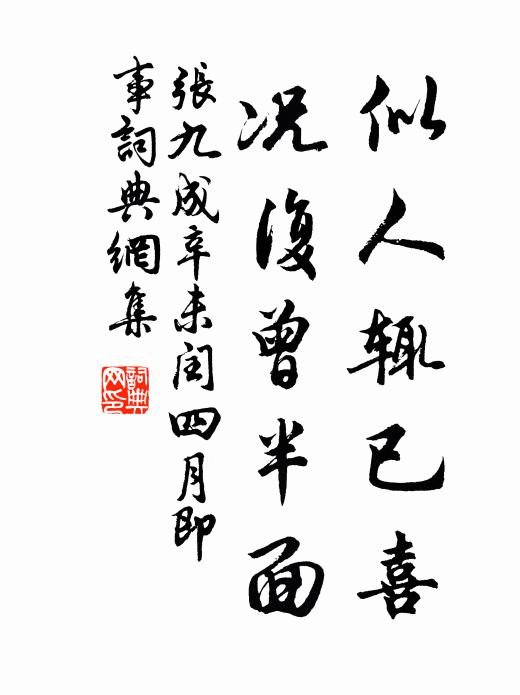 似人辄已喜
况復曾半面
張九成辛未闰四月即
事詞典網集
詞典
网印